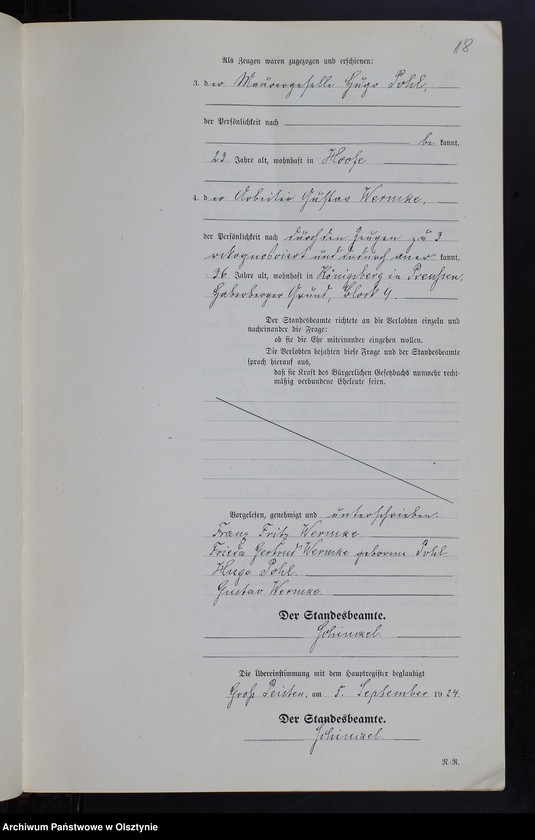 18
Als Zeugen waren zugezogen und erschienen:
3. der Maurergeselle Hugo Pohl,
der Persönlichkeit nach
be kannt,
23 Jahre alt, wohnhaft in
4. der Arbeiter Gustav Wermke,
der Persönlichkeit nach durch den Zeugen zu 3
rekognosziert und dadurch aner kannt,
36 Jahre alt, wohnhaft in Königsberg in Preussen,
Haberberger Grund, Block 9.
Der Standesbeamte richtete an die Verlobten einzeln und
nacheinander die Frage:
ob sie die Ehe miteinander eingehen wollen.
Die Verlobten bejahten diese Frage und der Standesbeamte
sprach hierauf aus,
daß sie kraft des Bürgerlichen Gesetzbuchs nunmehr recht-
mäßig verbundene Eheleute seien.
Vorgelesen, genehmigt und unterschrieben.
Franz Fritz Wermke
Frieda Gertrud Wermke geborene Pohl
Hugo Pohl.
Gustav Wermke.
Der Standesbeamte.
Die Übereinstimmung mit dem Hauptregister beglaubigt
Groß Peisten, am 5. September 1924.
Der Standesbeamte.
R.-R.
Archiwum Państwowe w Olsztynie